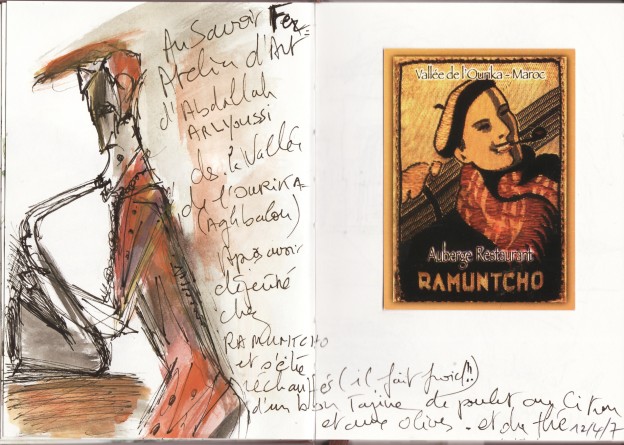 Au Savoir Fer=
Atelier d'Art
d'Abdallah
ARLYOUSSI
de la Vallée
de l'OURIKA=
(Aghbalou)
Après avoir
déjeuné
chez
RAMUNTCHO
et s'être
réchauffés (il fait froid!!)
d'un bon Tajine de poulet au Citron
et aux olives. et du thé 12/4/7
Vallée de l'Ourika - Maroc
Auberge Restaurant
RAMUNTCHO